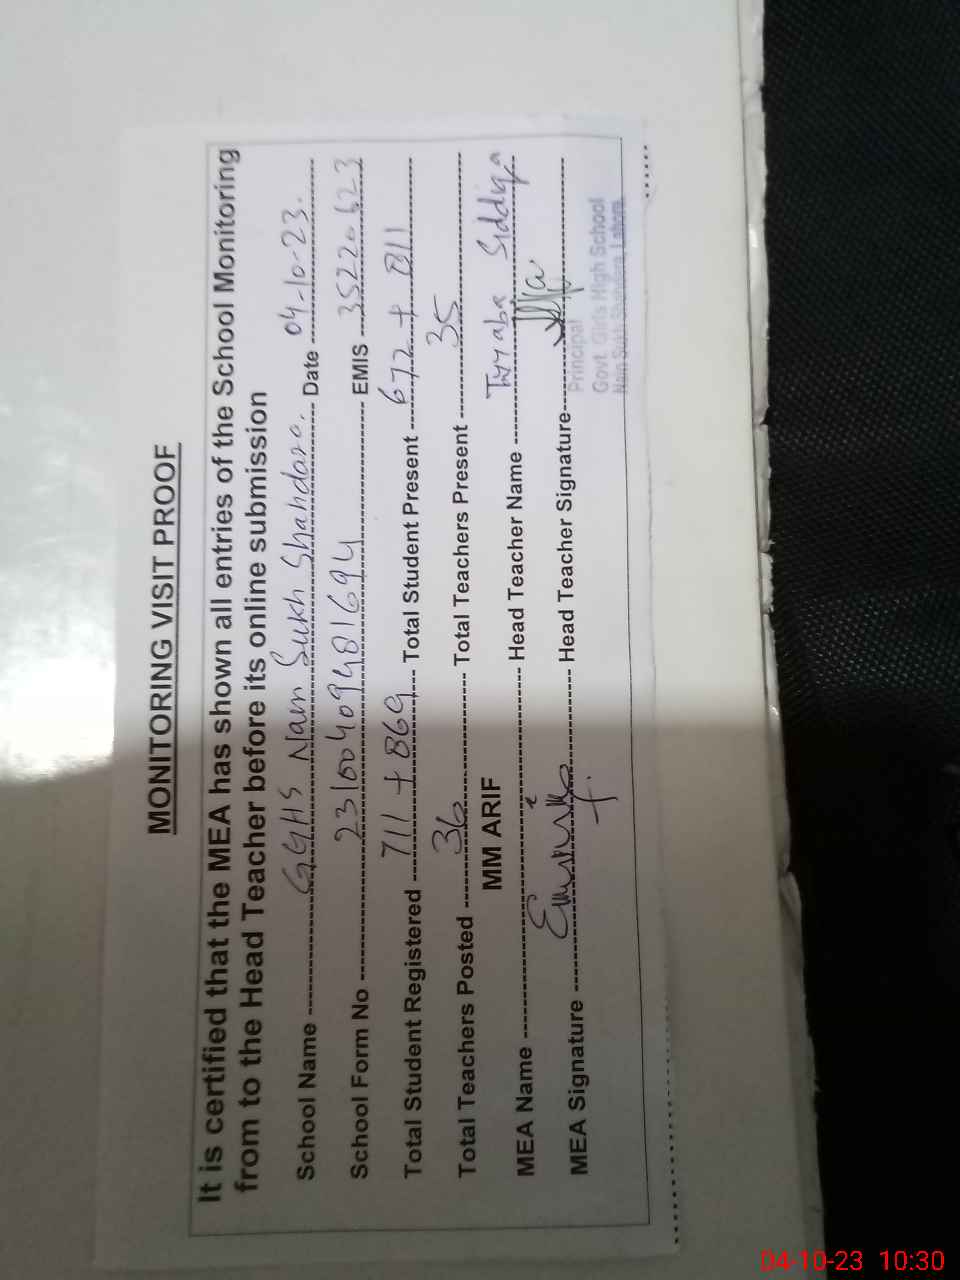 MONITORING VISIT PROOF
It is certified that the MEA has shown all entries of the School Monitoring
from to the Head Teacher before its online submission
School Name GGHS Nain Sukh Shahdara. Date 04-10-23.
School Form No 23100409481694 EMIS 35220623
Total Student Registered 711 + 869 Total Student Present 672 + 811
Total Teachers Posted 36 Total Teachers Present 35
MM ARIF
MEA Name Head Teacher Name Tayyaba Siddiqa
MEA Signature Head Teacher Signature
Principal
Govt. Girls High School
Nain Sukh Shahdara, Lahore
04-10-23 10:30